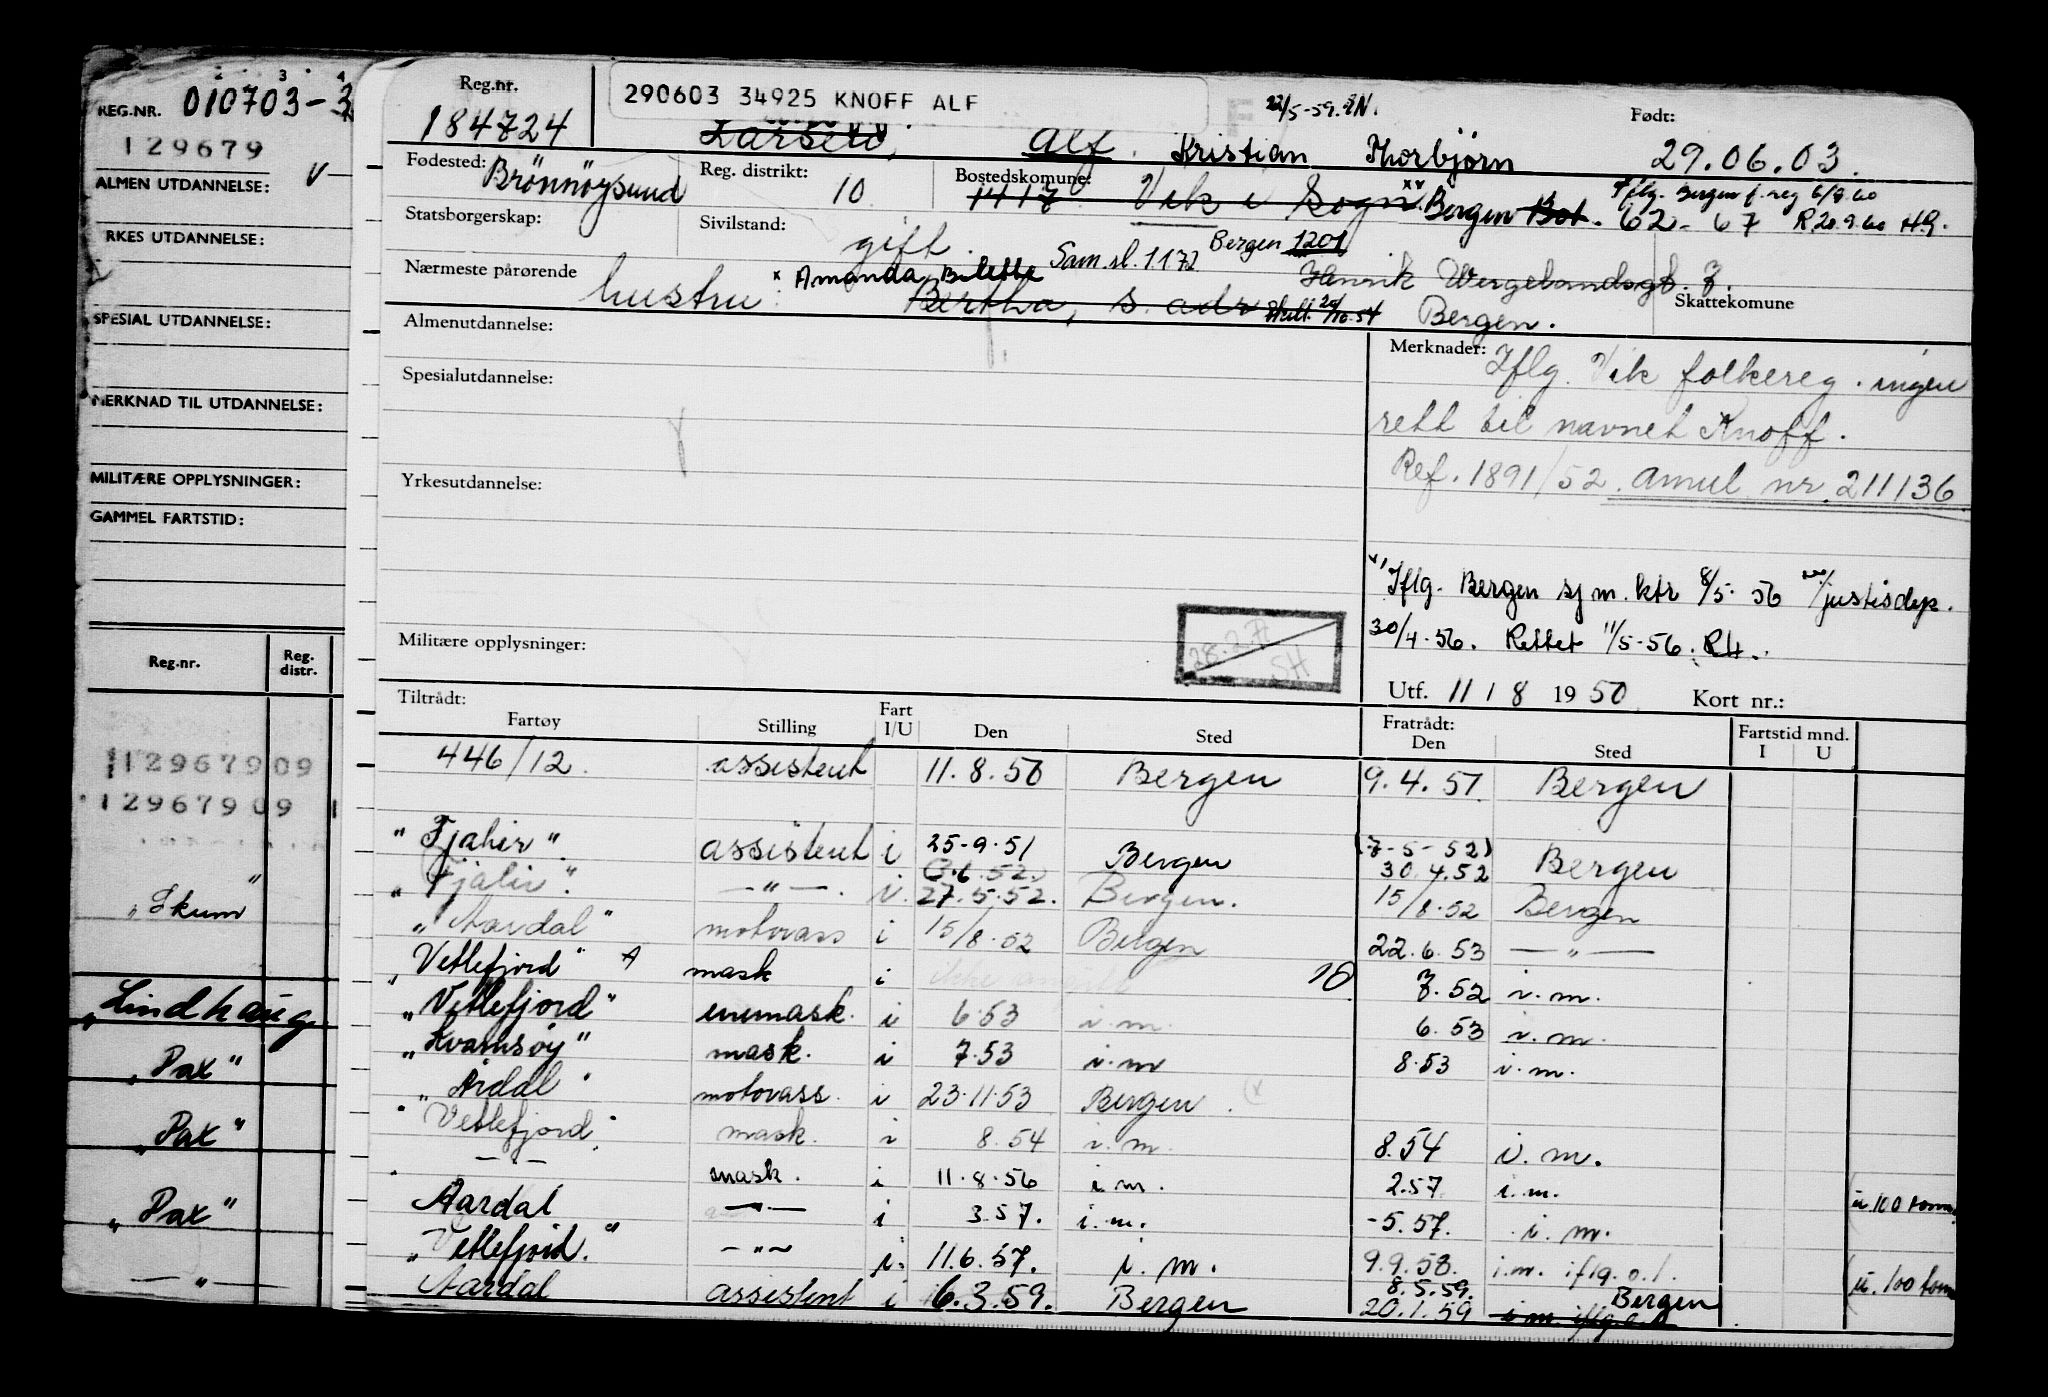 2 3 4
REG.NR. 010703-3
129679
ALMEN UTDANNELSE: V
RKES UTDANNELSE:
SPESIAL UTDANNELSE:
MERKNAD TIL UTDANNELSE:
MILITÆRE OPPLYSNINGER:
GAMMEL FARTSTID:
Reg.nr. Reg. distr.
129679 09
129679 09
"Skum"
"Lindhaug
"Pax"
"Pax"
"Pax"
— " —
Reg.nr. 184724
290603 34925 KNOFF ALF
22/5-59. EN.
Født:
Larsen, Alf Kristian Thorbjørn 29.06.03.
Fødested: Brönnöysund
Reg. distrikt: 10
Bostedskomune: 1417 Vik i Sogn xx Bergen Bot. 62-67
Iflg. Bergen f.reg 6/9.60
R.20.9.60 H.G.
Statsborgerskap:
Sivilstand: gift
Sam.sl. 1172 Bergen 1201
Nærmeste pårørende hustru: x Amanda Bolette
Bertha, s. adr Skilt 20/10.54
Henrik Wergelandsgt. 7.
Bergen.
Skattekomune
Almenutdannelse:
Spesialutdannelse:
Yrkesutdannelse:
Militære opplysninger:
28.2.71
SH
Merknader: Iflg. Vik folkereg. ingen
rett til navnet Knoff.
Ref. 1891/52. Amul. nr. 211136
x/ Iflg. Bergen sj m. ktr 8/5-56 xx/justisdep.
30/4-56. Rettet 11/5-56. RH.
Utf. 11 / 8 1950 Kort nr.:
Tiltrådt:
Fartøy Stilling Fart I/U Den Sted Fratrådt: Den Sted Fartstid mnd. I U
446/12. assistent 11.8.50 Bergen 9.4.51. Bergen
"Fjalir". assistent i 25-9-51 Bergen (7-5-52) 30.4.52 Bergen
"Fjalir". —"—. i. (3.6.52) 27.5.52. Bergen. 15/8.52 Bergen
"Aardal" motorass i 15/8.52 Bergen 22.6.53 —"—
"Vetlefjord" A mask i ikke 10 7.52 i.m.
"Vetlefjord" enemask. i 6.53 i.m. 6.53 i.m.
"Kvamsøy" mask. i 7.53 i.m 8.53 i.m.
"Årdal" motorass. i 23.11.53 Bergen. (x
"Vetlefjord" mask. i 8.54 i.m. 8.54 i.m.
" — - — mask. i 11.8.56 i.m. 2.57 i.m. u.100 tonn
Aardal —"— i 3.57. i.m. -5.57. i.m.
"Vetlefjord." —"— i. 11.6.57. i.m. 9.9.58. i.m. iflg.o.l. u.100 tonn
Aardal assistent i 6.3.59. Bergen 8.5.59. Bergen
20.1.59 i m. iflg.o.l